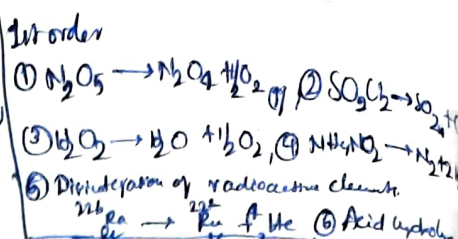 1st order
① N₂O₅ → N₂O₄ + ½O₂ (g), ② SO₂Cl₂ → SO₂ +
③ H₂O₂ → H₂O + ½O₂, ④ NH₄NO₂ → N₂ + 2
⑤ Disintegration of radioactive elements.
²²⁶Ra → He ⑥ Acid hydrol